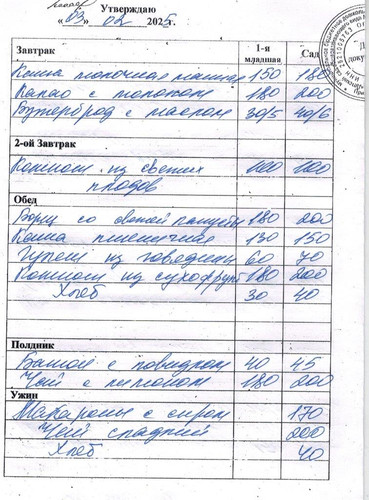 Утверждаю
«03» 02 2025г.
Завтрак 1-я младшая Сад
Каша молочная манная 150 180
Какао с молоком 180 200
Бутерброд с маслом 30/5 40/6
2-ой Завтрак
Компот из свежих 100 100
плодов
Обед
Борщ со свежей капусты 180 200
Каша пшеничная 130 150
Гуляш из говядины 60 70
Компот из сухофрукт 180 200
Хлеб 30 40
Полдник
Батон с повидлом 40 45
Чай с лимоном 180 200
Ужин
Макароны с сыром 170
Чай сладкий 200
Хлеб 40